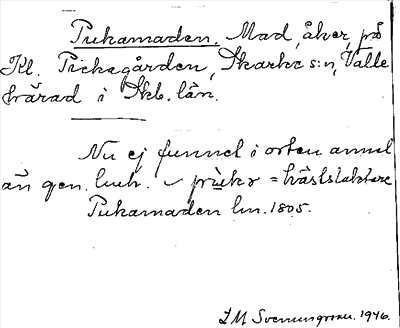 Pukamaden. Mad, åker, på
Kl. Prickagården, Skarke s:n, Valle
härad i Skb. län.
Nu ej funnet i orten annat
än gen. huk. ✓ pruker = hästslaktare
Pukamaden lm. 1805.
I M Svennungsson. 1946.